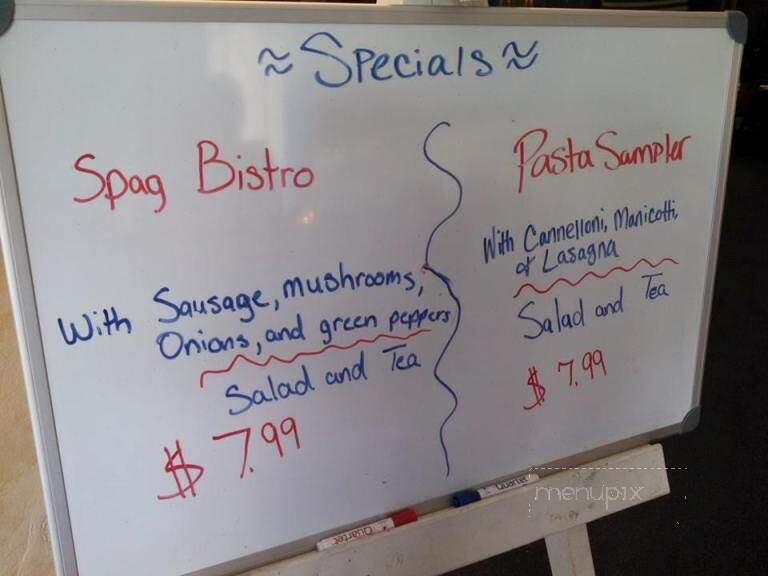 ≈ Specials ≈
Spag Bistro
With Sausage, mushrooms,
Onions, and green peppers
Salad and Tea
$ 7.99
Pasta Sampler
With Cannelloni, Manicotti,
& Lasagna
Salad and Tea
$ 7.99
Quartet
Quartet
menupix